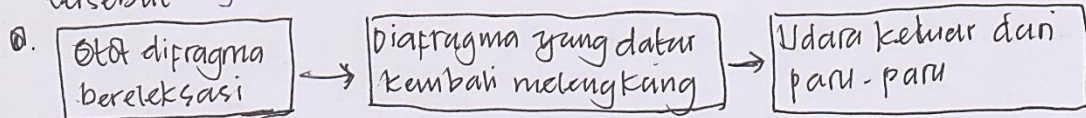 a.
Otot difragma
bereleksasi
Diafragma yang datar
kembali melengkung
Udara keluar dari
paru-paru